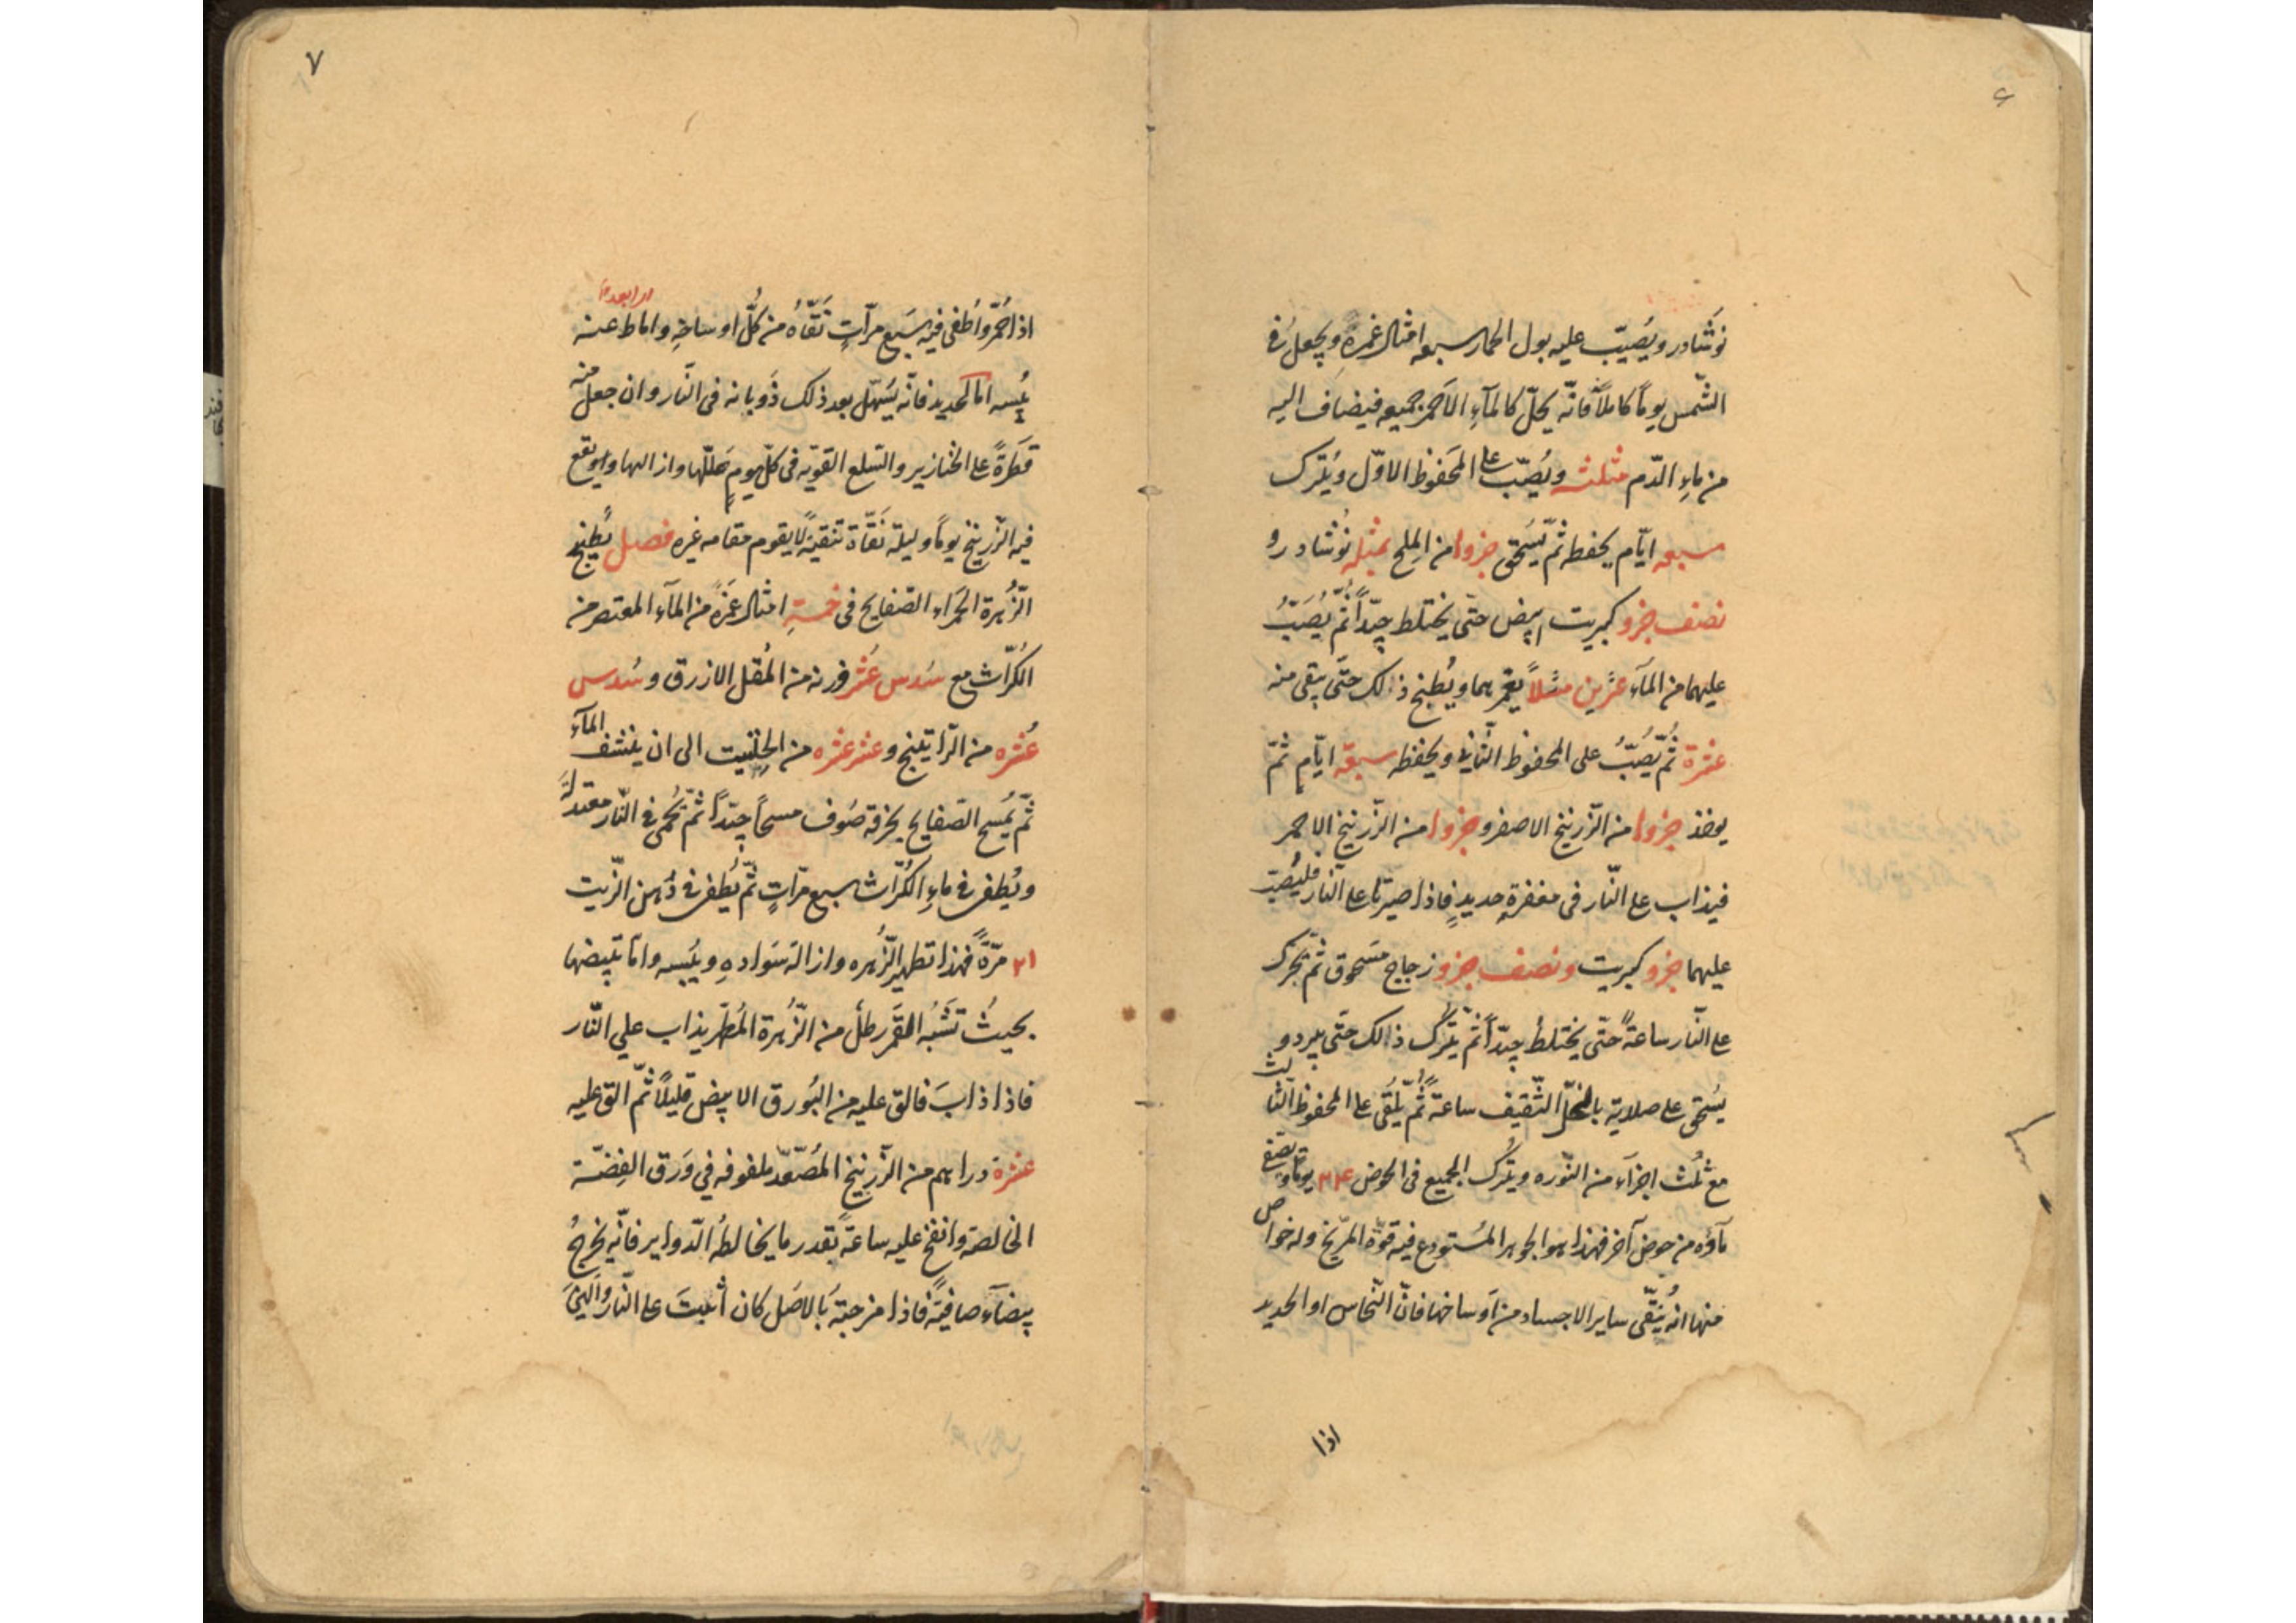 نوشادر ويُصَبّ عليه بول الحمار سبعه امثال غمرهِ ويجعل فى
الشّمس يوماً كاملاً فانّه يحلّ كالمآءِ الاَحمر جميعه فيضاف اليه
من ماءِ الدّم مثلثه ويُصَبّ على المَحفوظ الاوّل ويُترك
سبعه ايّام يحفظ ثمّ يُسَحق جزوا من المِلح بمثله نُوشادر و
نصف جزو كبريت ابيض حتّى يختلط جيّداً ثُمّ يُصَبّ
عليهما من المآء عشرين مثلاً يغمرهما ويُطبخ ذالك حتَّى يبقى منه
عشرة ثُمّ يُصَبُّ على المحفوظ الثَّانى ويحفظه سبعة ايّامٍ ثمّ
يوخذ جزوا من الزّرنيخ الاصفر وجزوا من الزّرنيخ الاحمر
فيذاب على النّار فى مغفرةٍ حديدٍ فاذا صيرتا على النّار فليُصَبّ
عليهما جزو كبريت ونصف جزو زجاج مَسَحوق ثمّ تحرّك
على النّار ساعةً حتّى يختلط جيّداً ثمّ يُترك ذالك حتّى يبرد و
يُسَحق على صلاية بالخلّ الثّقيف ساعةً ثُمّ يُلقى على المحفوظ الثالث
مع ثُلث اجزآء من النّوره ويتُرك الجميع فى الحوض ٢٤ يوماً ويصَفى
مآؤه من حوض آخر فهذا هو الجوهر المُستودع فيه قوّة المرّيخ وله خواص
منها انه يُنَقّى ساير الاجساد من اَوساخها فانّ النّحاس او الحديد
اذا
٧
اذا اُحمّر واُطفى فيه سَبع مرّاتٍ نَقّاهُ من كُلّ اوساخهِ واماط عنه
يُبسه امّا الحديد فانّه يَسَهّل بعد ذلك ذَوبانه فى النّار وان جعل منه
قَطرةً على الخنازير والسّلع القويّه فى كلّ يومٍ حَلّلها وازالها واو يقع
فيه الزّرنيخ يوماً وليلة نَقّاة تنقيةً لا يقوم مقامه غيره فصل يُطبخ
الزُّهرة الحَمراء الصّفايح فى خمسةِ امثال غمَرةً من المآء المعتصر من
الكُرّاث مع سُدس عُشر وزنه من المُقل الازرق وسُدس
عُشره من الرّاتينج وعشر عشره من الحِلتيت الى ان ينشف المآء
ثمّ يُمسح الصّفايح بخرقة صُوف مسحاً جيّداً ثمّ تُحمى فى النّار معتدلةً
ويُطفى فى ماءِ الكُرّاث سبع مرّاتٍ ثمّ يُطفى فى دُهن الزّيت
٢١ مرّةً فهذا تطهير الزُّهره وازالة سَوادهِ ويُبسه وامّا تبييضها
بحيثُ تَشبُه القَمر رطل من الزُّهرة المُطهّر يذاب علي النّار
فاذا ذابَ فالق عليه من البُورق الابيض قليلاً ثمّ الق عليه
عشرة دراهم من الزّرنيخ المُصَعّد ملفوفه في وَرق الفِضّة
الخالصة وانفخ عليه ساعةً بقدر ما يخالطُه الدّواء ير فانّه يخرجُ
بيضآءَ صافيةً فاذا مزجتهُ بالاصَل كان أثبتَ على النّار واَلينَ